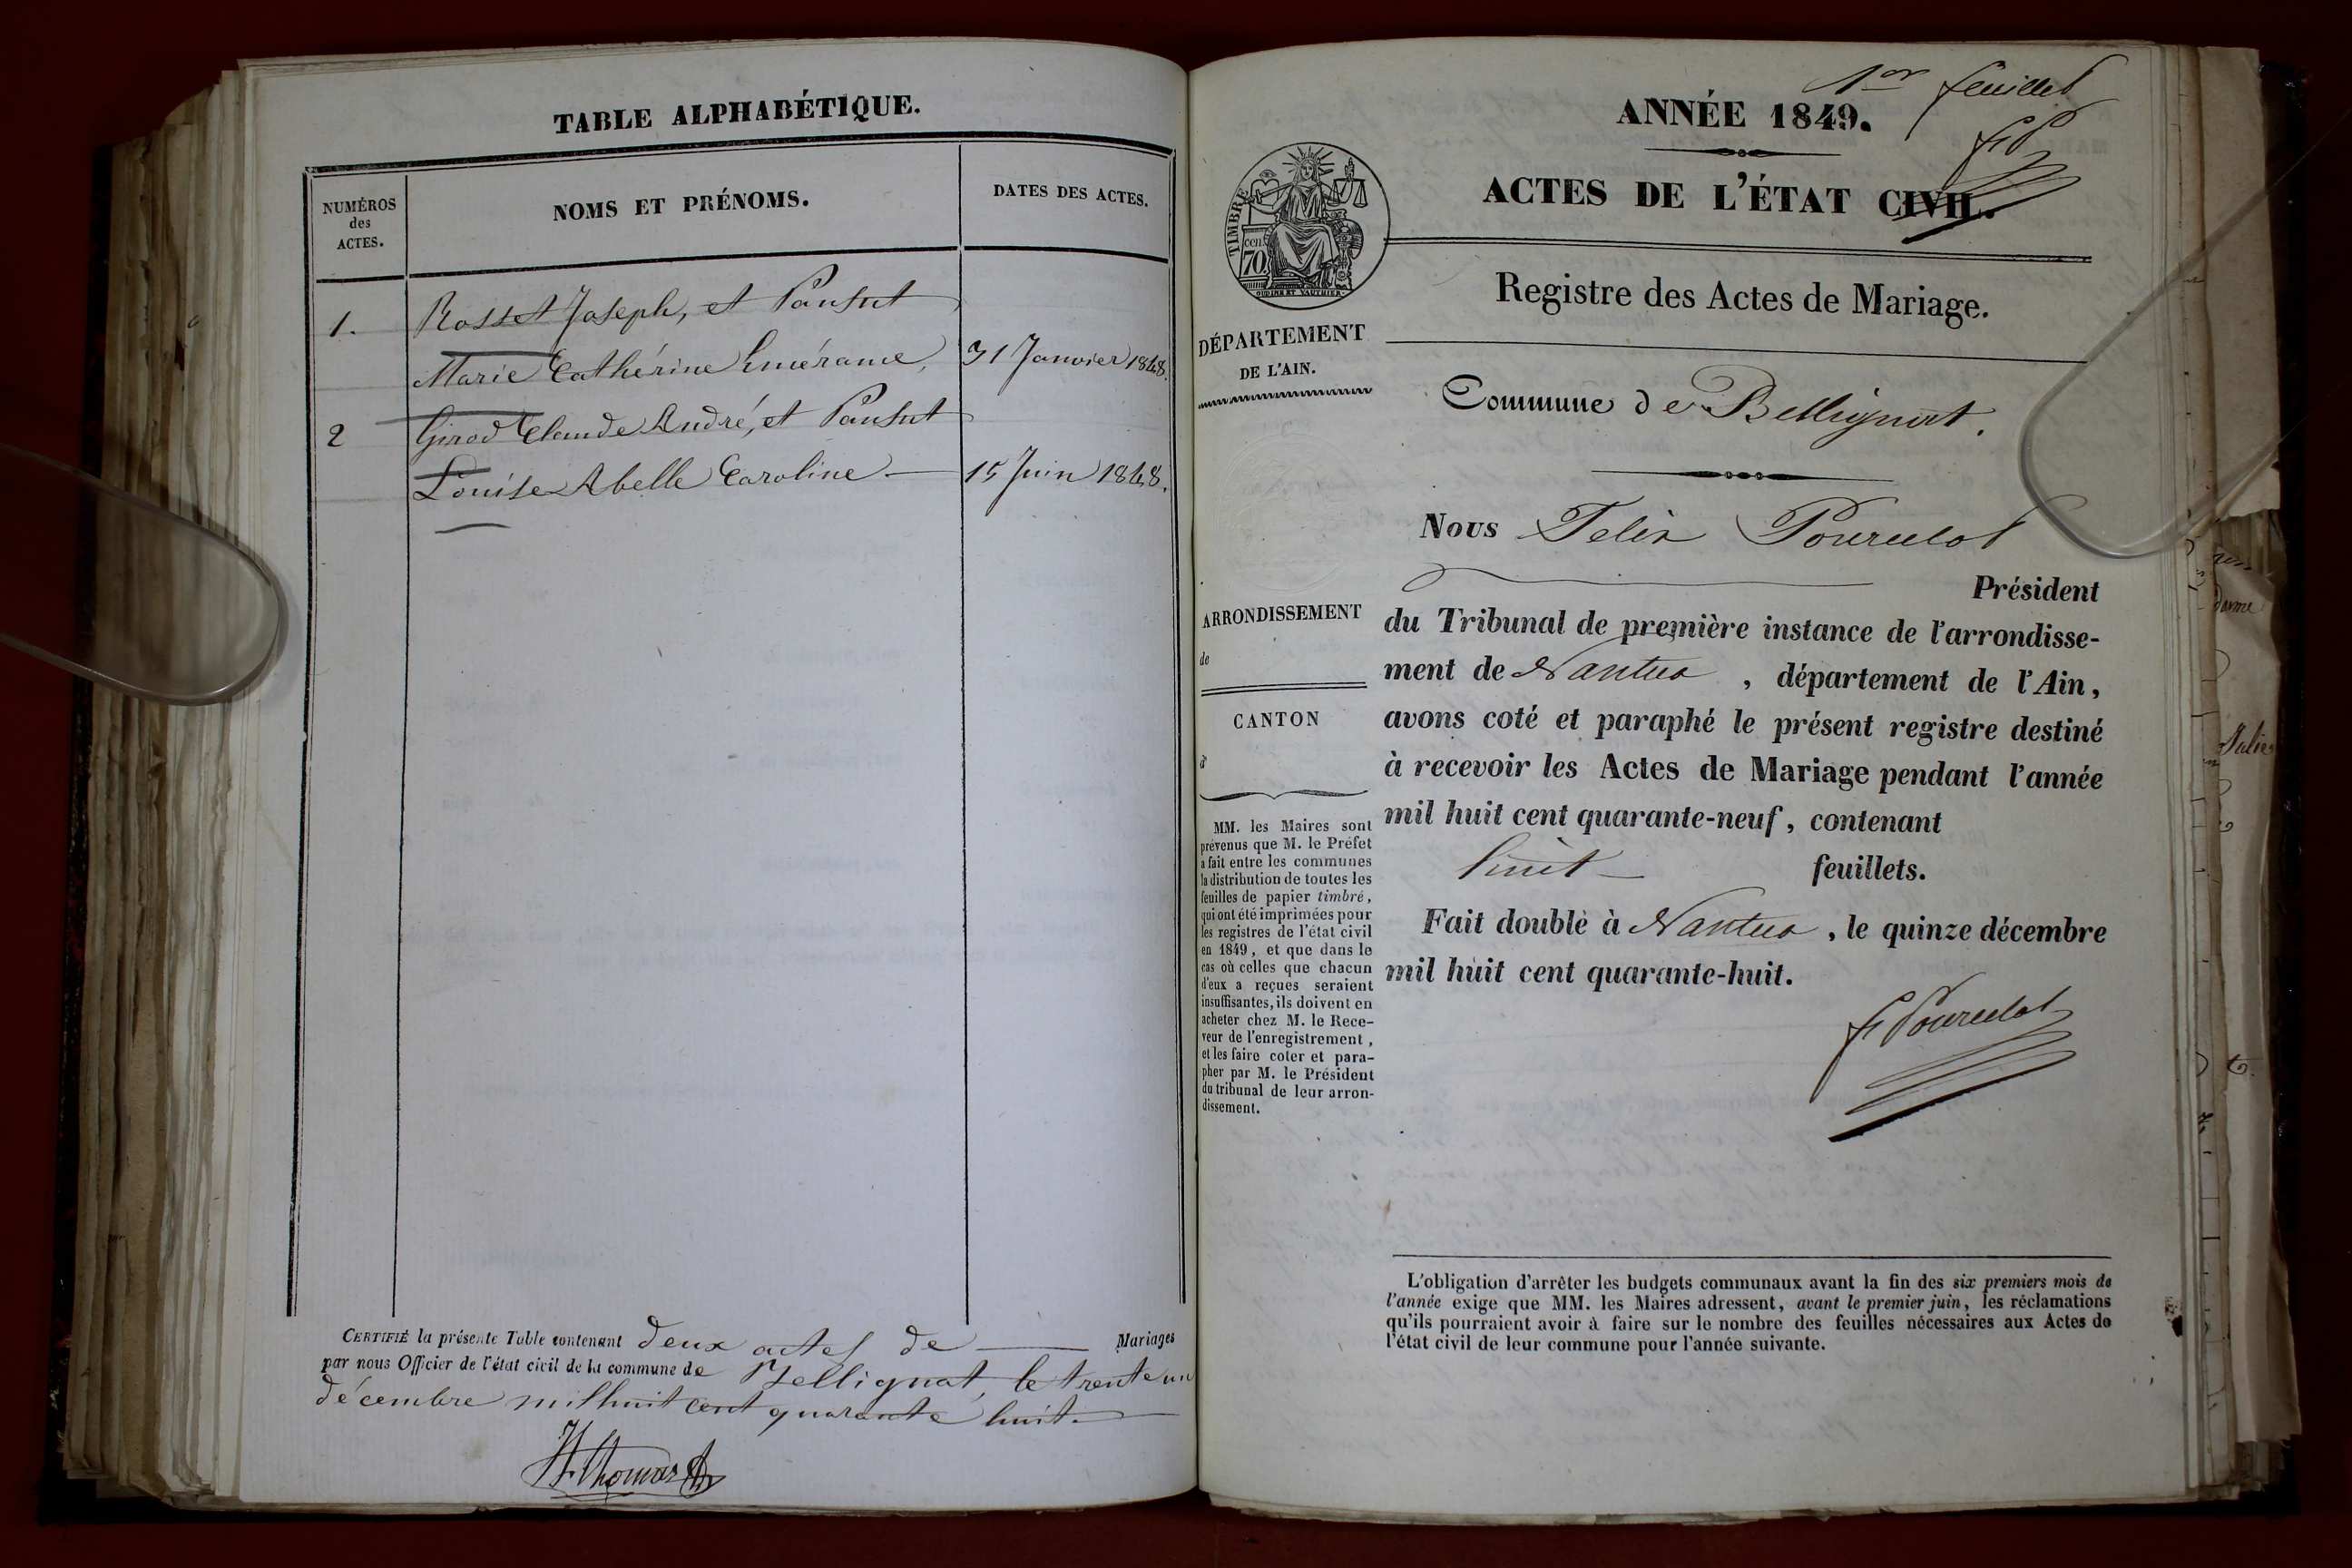 TABLE ALPHABÉTIQUE.
NUMÉROS
des
ACTES.
NOMS ET PRÉNOMS.
DATES DES ACTES.
1. Rosset Joseph, et Pansut
Marie Cathérine Emérance, 31 Janvier 1848.
2 Girod Claude André, et Pansut
Louise Abelle Caroline — 15 Juin 1848.
CERTIFIÉ la présente Table contenant deux actes de — Mariages
par nous Officier de l'état civil de la commune de Bellignat, le trente un
décembre mil huit cent quarante huit.
Thomas
1er feuillet
ANNÉE 1849.
fP
ACTES DE L'ÉTAT CIVIL.
TIMBRE
70 cen.
OUDINÉ ET VAUTHIER
Registre des Actes de Mariage.
DÉPARTEMENT
DE L'AIN.
Commune de Bellignat.
Nous Felix Pourcelot
Président
ARRONDISSEMENT
de
CANTON
d
du Tribunal de première instance de l'arrondisse-
ment de Nantua, département de l'Ain,
avons coté et paraphé le présent registre destiné
à recevoir les Actes de Mariage pendant l'année
mil huit cent quarante-neuf, contenant
huit — feuillets.
Fait double à Nantua, le quinze décembre
mil huit cent quarante-huit.
f Pourcelot
MM. les Maires sont
prévenus que M. le Préfet
a fait entre les communes
la distribution de toutes les
feuilles de papier timbré,
qui ont été imprimées pour
les registres de l'état civil
en 1849, et que dans le
cas où celles que chacun
d'eux a reçues seraient
insuffisantes, ils doivent en
acheter chez M. le Rece-
veur de l'enregistrement,
et les faire coter et para-
pher par M. le Président
du tribunal de leur arron-
dissement.
L'obligation d'arrêter les budgets communaux avant la fin des six premiers mois de
l'année exige que MM. les Maires adressent, avant le premier juin, les réclamations
qu'ils pourraient avoir à faire sur le nombre des feuilles nécessaires aux Actes de
l'état civil de leur commune pour l'année suivante.